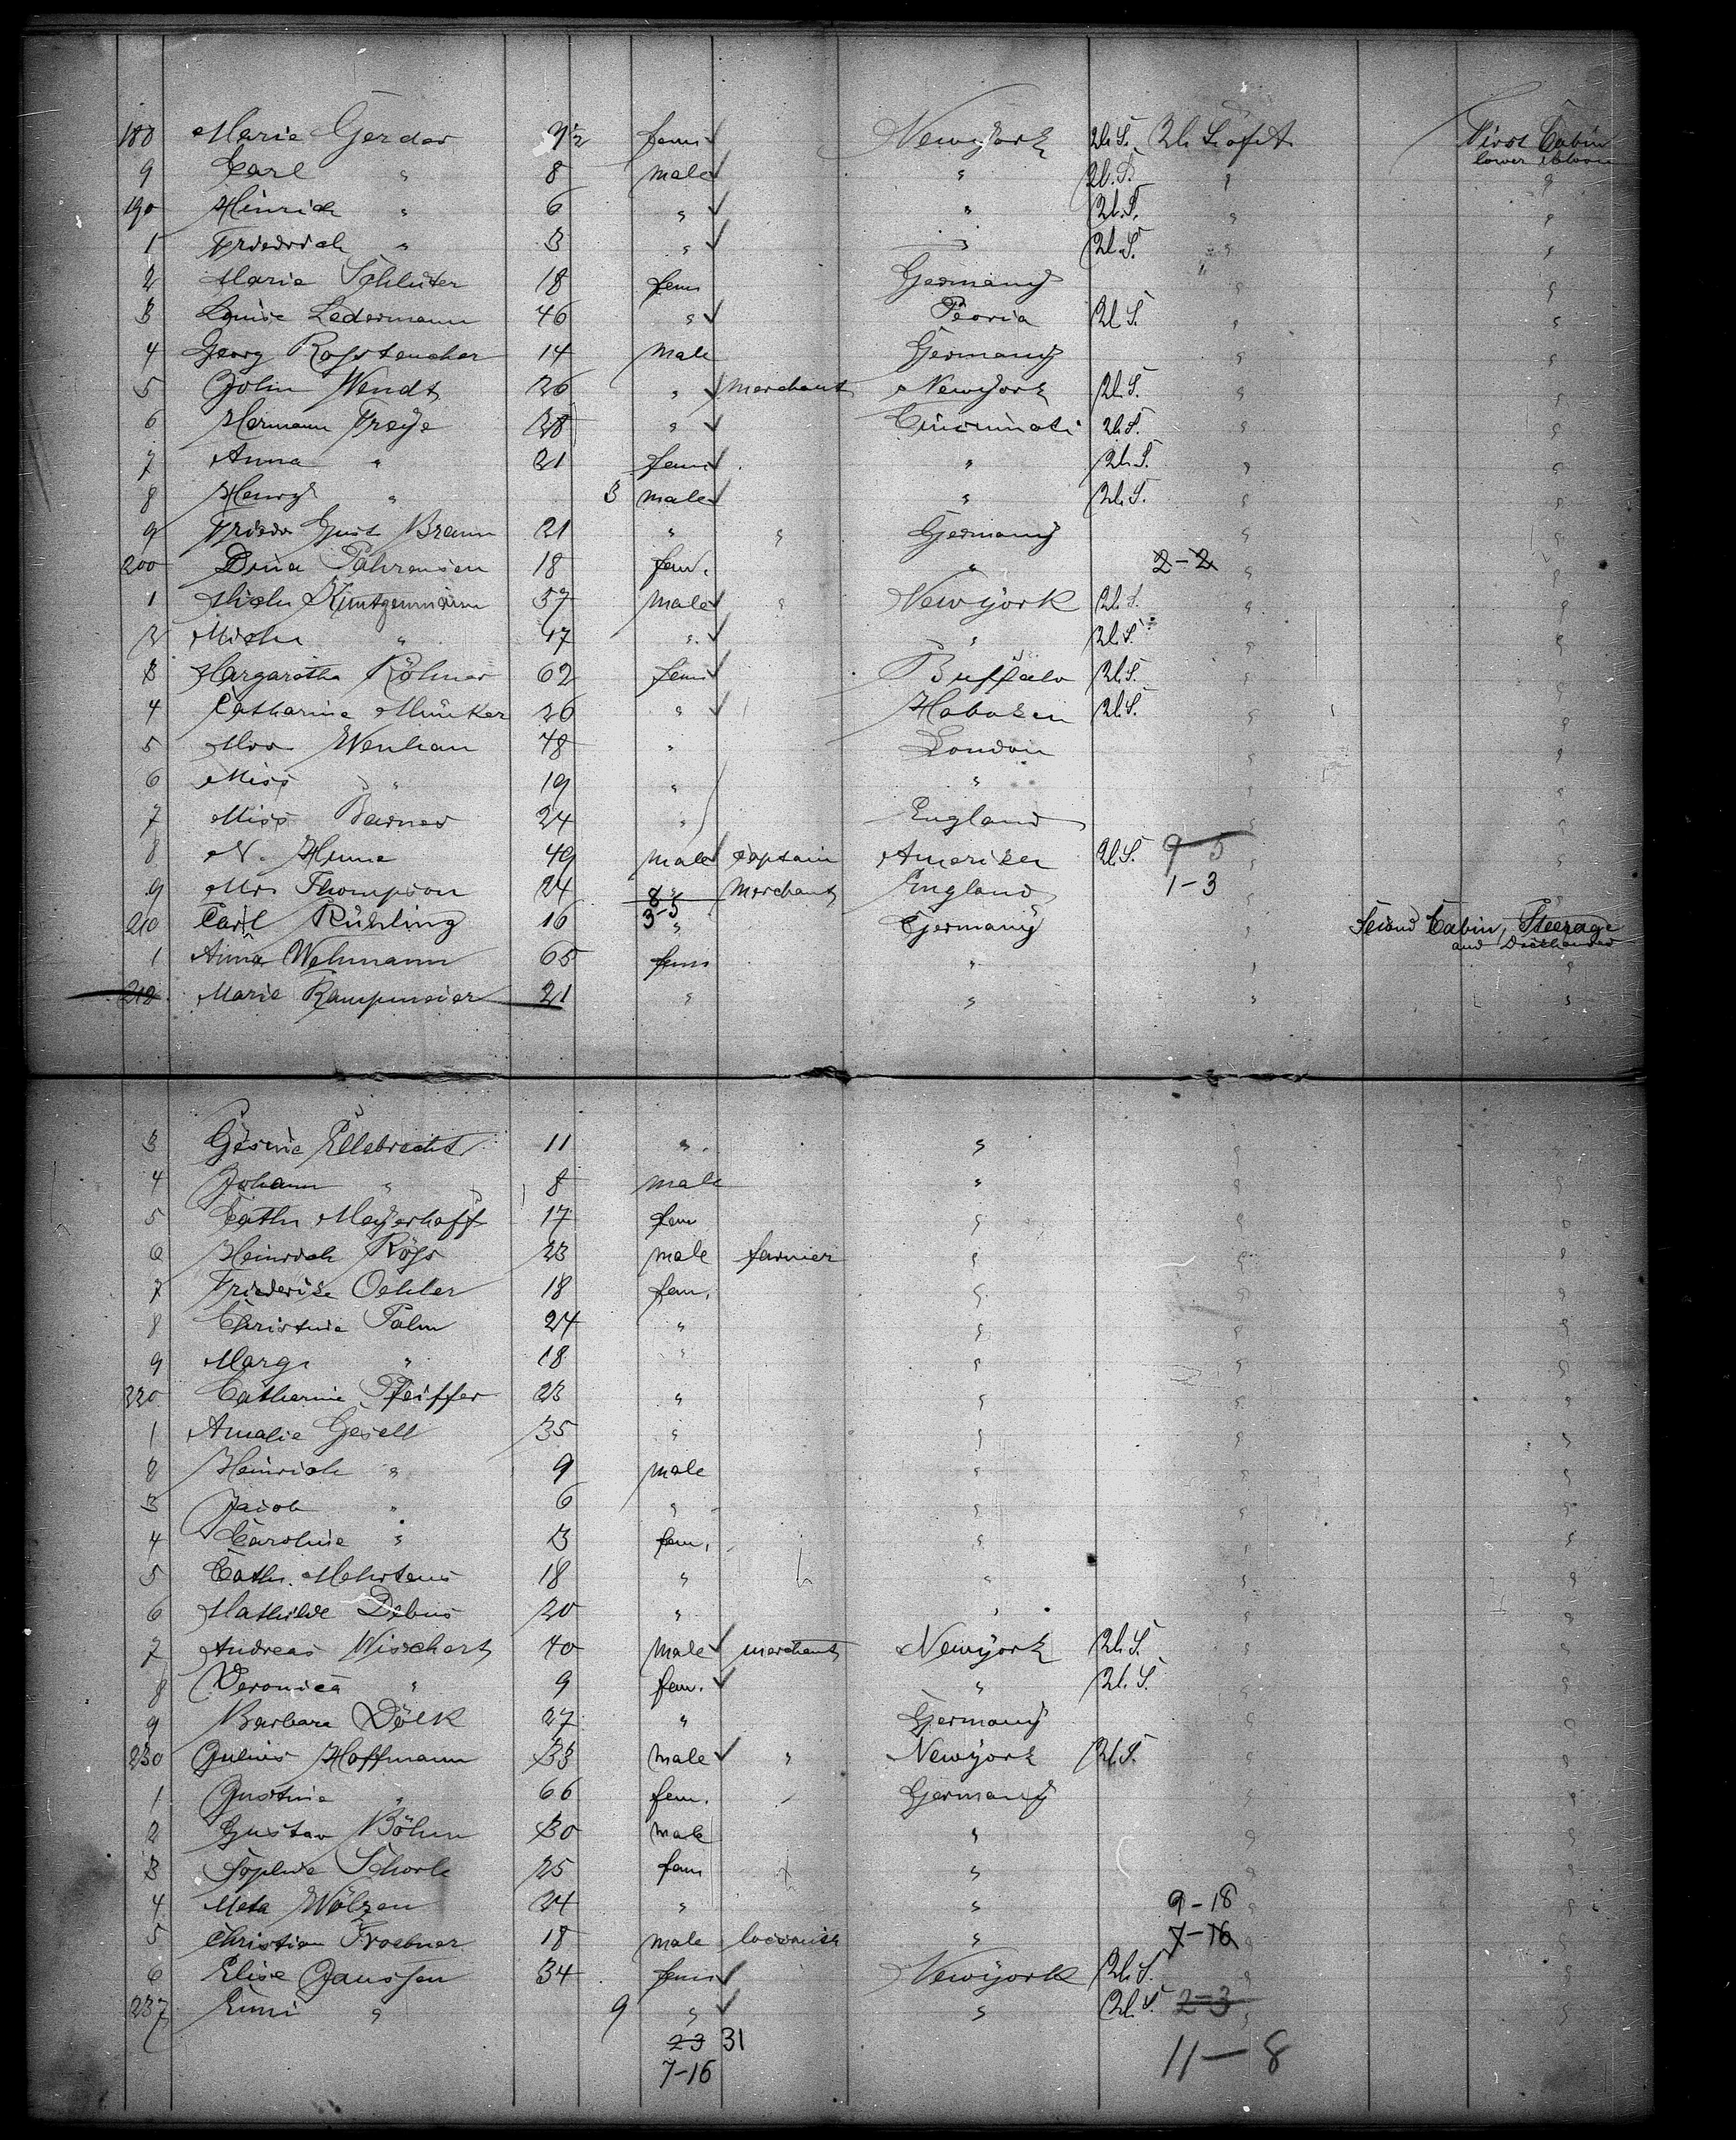 188 Marie Gerdes 9 1/2 fem. Newyork U. S. U. S. of A. First Cabin
lower saloon
9 Carl " 8 male " U. S. " "
190 Hinrich " 6 " " U. S. " "
1 Friedrich " 3 " " U. S. " "
2 Marie Schluter 18 fem Germany " "
3 Louise Ledermann 46 " Peoria U. S. " "
4 Georg 14 male Germany " "
5 John Wendt 26 " merchant Newyork U. S. " "
6 Hermann Freye 38 " Cincinnati U. S. " "
7 Anna " 21 fem " U. S. " "
8 Henry " 3 male " U. S. " "
9 Friedr Gust Braun 21 " " Germany " "
200 Dina 18 fem. " 2-2 " "
1 Mich. 57 male " Newyork U. S. " "
2 Mich. " 17 " " U. S. " "
3 Margaretha 62 fem Buffalo U. S. " "
4 Catharine Münker 26 " Hoboken U. S. " "
5 Mrs 48 " London " "
6 Miss " 19 " " " "
7 Miss Barnes 24 " England " "
8 N. Hume 49 male captain America U. S. 9-5 " "
9 Mr. Thompson 24 " merchant England 1-3 " "
8-5
3-5
210 Carl Rühling 16 " Germany " Second Cabin, Steerage
and Deckhouse
1 Anna Wehmann 65 fem " " "
212 Marie Kampmeier 21 " " " "
3 Gesine Ellebrecht 11 " " " "
4 Johann " 8 male " " "
5 Cath. Meyerhoff 17 fem " " "
6 Heinrich 23 male farmer " " "
7 Friederike Oehler 18 fem. " " "
8 Christine Palm 24 " " " "
9 Marg. " 18 " " " "
220 Catharine Pfeiffer 23 " " " "
1 Amalie Gesell 35 " " " "
2 Heinrich " 9 male " " "
3 Jacob " 6 " " " "
4 Caroline " 3 fem. " " "
5 Cath. Mehrtens 18 " " " "
6 Mathilde Debus 20 " " " "
7 Andreas Wischert 40 male merchant Newyork U. S. " "
8 Veronica " 9 fem. " U. S. " "
9 Barbara Dölk 27 " Germany " "
230 Julius Hoffmann 33 male " Newyork U. S. " "
1 Justine " 66 fem. Germany " "
2 Gustav Böhm 30 male " " "
3 Sophie Schorle 25 fem " " "
4 Meta Wölzen 24 " " 9-18 " "
5 Christian Froebner 18 male " 7-16 " "
6 Elise Janssen 34 fem Newyork U. S. " "
237 Emi " 9 " " U. S. 2-3 " "
23 31
7-16
11-8